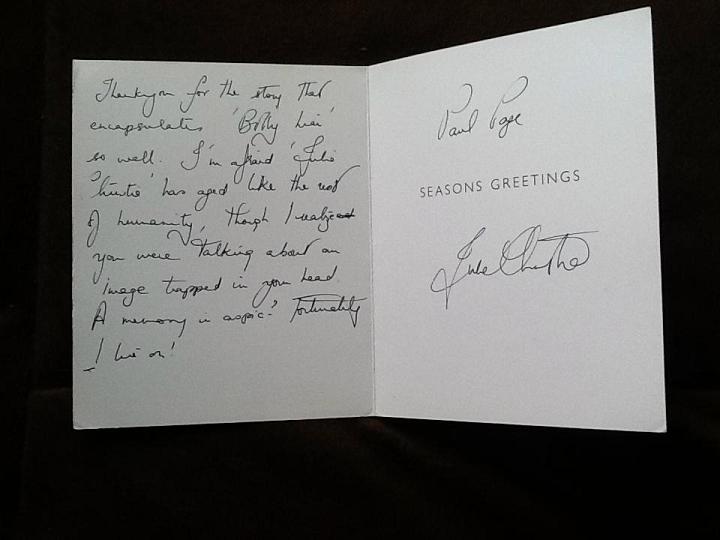 Thankyou for the story that
encapsulates 'Billy Liar'
so well. I'm afraid 'Julie
Christie' has aged like the rest
of humanity, though I realize
you were talking about an
image trapped in your head.
A memory in aspic-! Fortunately
I live on!
Paul Page
SEASONS GREETINGS
Julie Christie